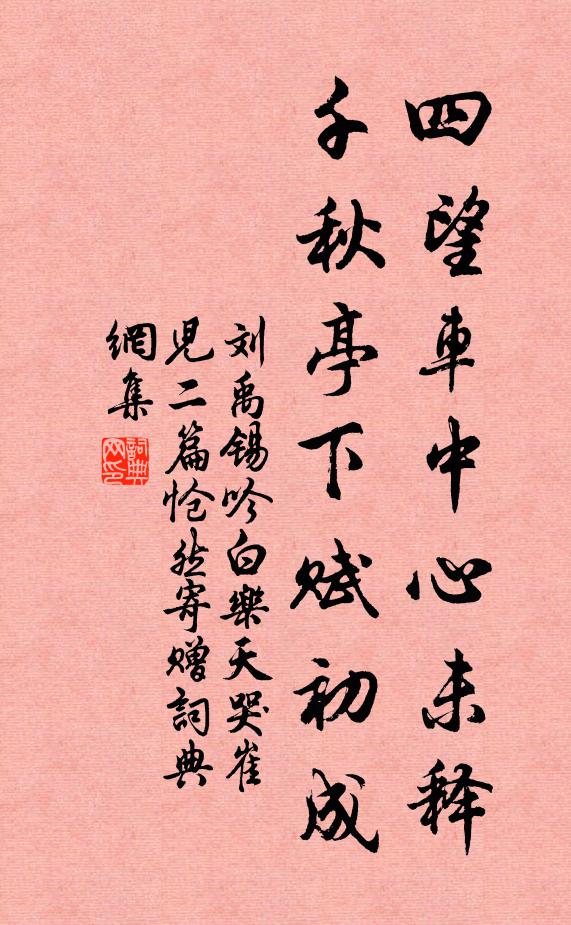 四望車中心未释
千秋亭下赋初成
刘禹锡吟白樂天哭崔
児二篇怆然寄赠詞典
網集
詞典網印